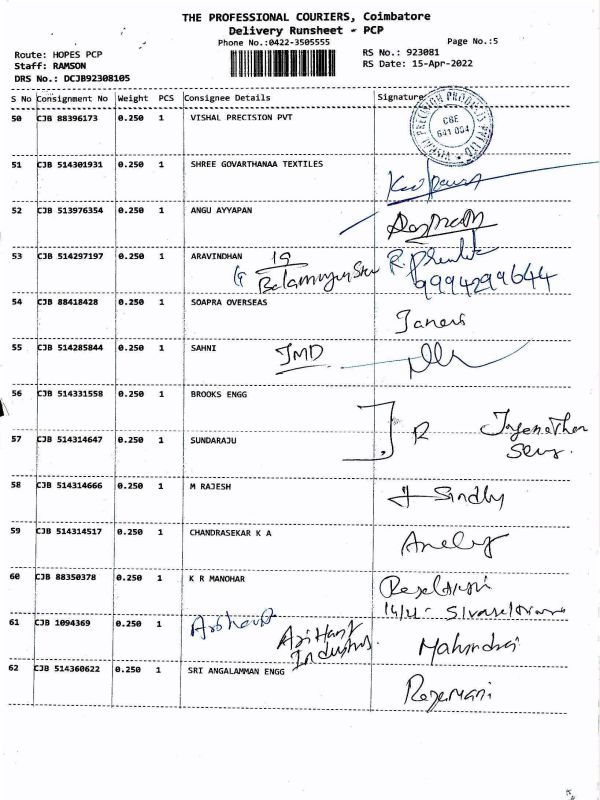 THE PROFESSIONAL COURIERS, Coimbatore
Delivery Runsheet - PCP
Phone No.:0422-3505555 Page No.:5
Route: HOPES PCP RS No.: 923081
Staff: RAMSON RS Date: 15-Apr-2022
DRS No.: DCJB92308105
S No Consignment No Weight PCS Consignee Details Signature
50 CJB 88396173 0.250 1 VISHAL PRECISION PVT
PRECISION PRODUCTS
CBE
641 004
51 CJB 514301931 0.250 1 SHREE GOVARTHANAA TEXTILES
52 CJB 513976354 0.250 1 ANGU AYYAPAN
53 CJB 514297197 0.250 1 ARAVINDHAN 19
9994299644
54 CJB 88418428 0.250 1 SOAPRA OVERSEAS
55 CJB 514285844 0.250 1 SAHNI JMD
56 CJB 514331558 0.250 1 BROOKS ENGG
57 CJB 514314647 0.250 1 SUNDARAJU R
58 CJB 514314666 0.250 1 M RAJESH Sindhy
59 CJB 514314517 0.250 1 CHANDRASEKAR K A
60 CJB 88350378 0.250 1 K R MANOHAR
61 CJB 1094369 0.250 1 Arihant
Industries.
62 CJB 514360622 0.250 1 SRI ANGALAMMAN ENGG